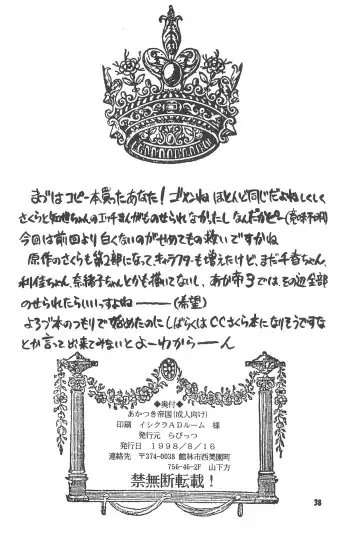 まずはコピー本買ったあなた!ゴメンねほとんど同じだよねしくしく
さくらと知世ちゃんのエッチまんがものせられなかったし なんだかピー(意味不明)
今回は前回より白くないのがせめてもの救いですかね
原作のさくらも第2部になって、キャラクターも増えたけど、まだ千春ちゃん、
利佳ちゃん、奈緒子ちゃんとかも描いてないし、あか帝3では、その辺全部
のせられたらいいっすよね――――(希望)
よろづ本のつもりで始めたのにしばらくはCCさくら本になりそうですな
とか言って出来てみないとよーわからーーん
◆奥付◆
あかつき帝国(成人向け)
印刷 イシクラADルーム 様
発行元 らびっつ
発行日 1998/8/16
連絡先 〒374-0038 館林市西美園町
756-46-2F 山下方
禁無断転載!
38